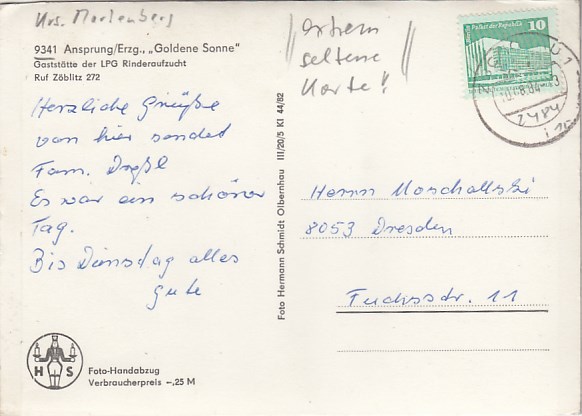 Krs. Marienberg
9341 Ansprung/Erzg., „Goldene Sonne"
Gaststätte der LPG Rinderaufzucht
Ruf Zöblitz 272
extrem
seltene
Karte!
10
Herzliche Grüße
von hier sendet
Fam.
Es war ein schöner
Tag.
Bis Dienstag alles
Gute
Foto Hermann Schmidt Olbernhau III/20/5 Kl 44/82
Herrn Moschallski
8053 Dresden
Fuchsstr. 11
H S
Foto-Handabzug
Verbraucherpreis -,25 M